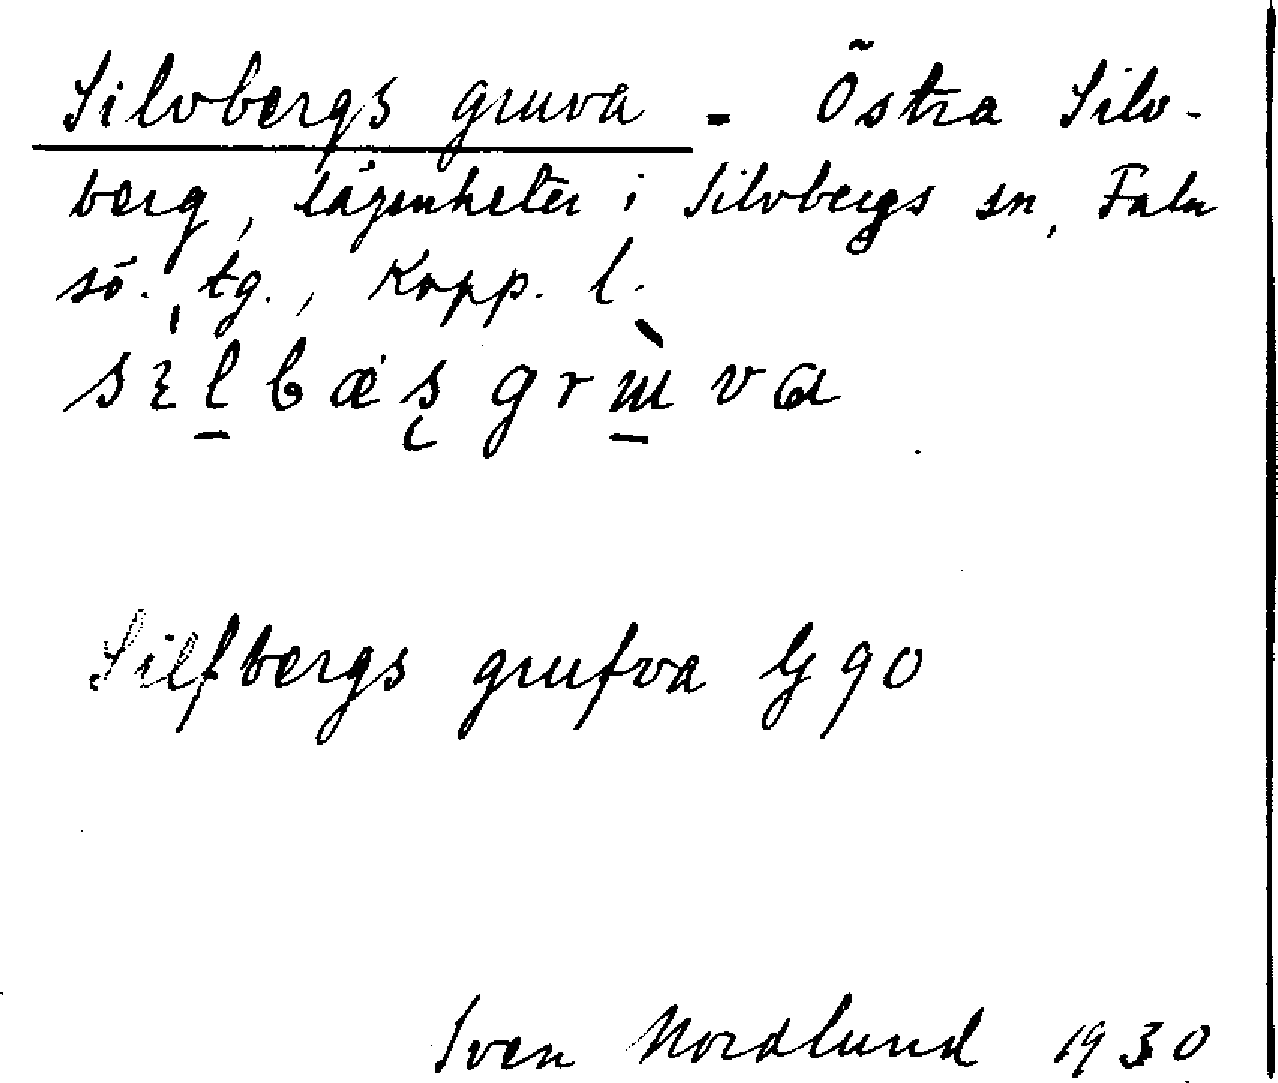 Silvbergs gruva = Östra Silv-
berg, lägenheter i Silvbergs sn, Falu
sö. tg., Kopp. l.
Silfbergs grufva G 90
Sven Nordlund 1930